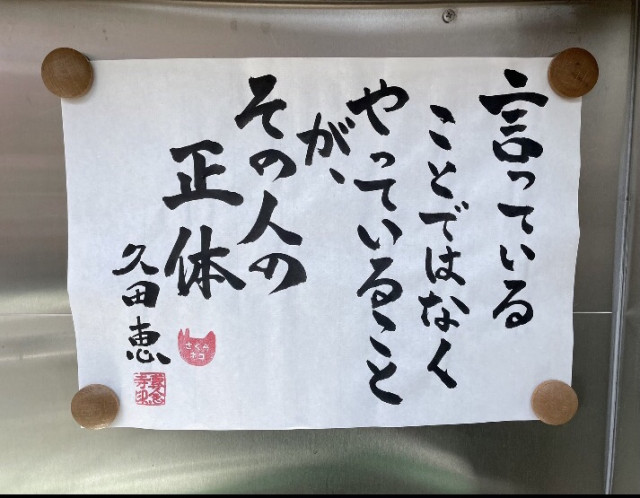 言っている
ことではなく
やっていること
が、
その人の
正体
久田恵
さくら
ネコ